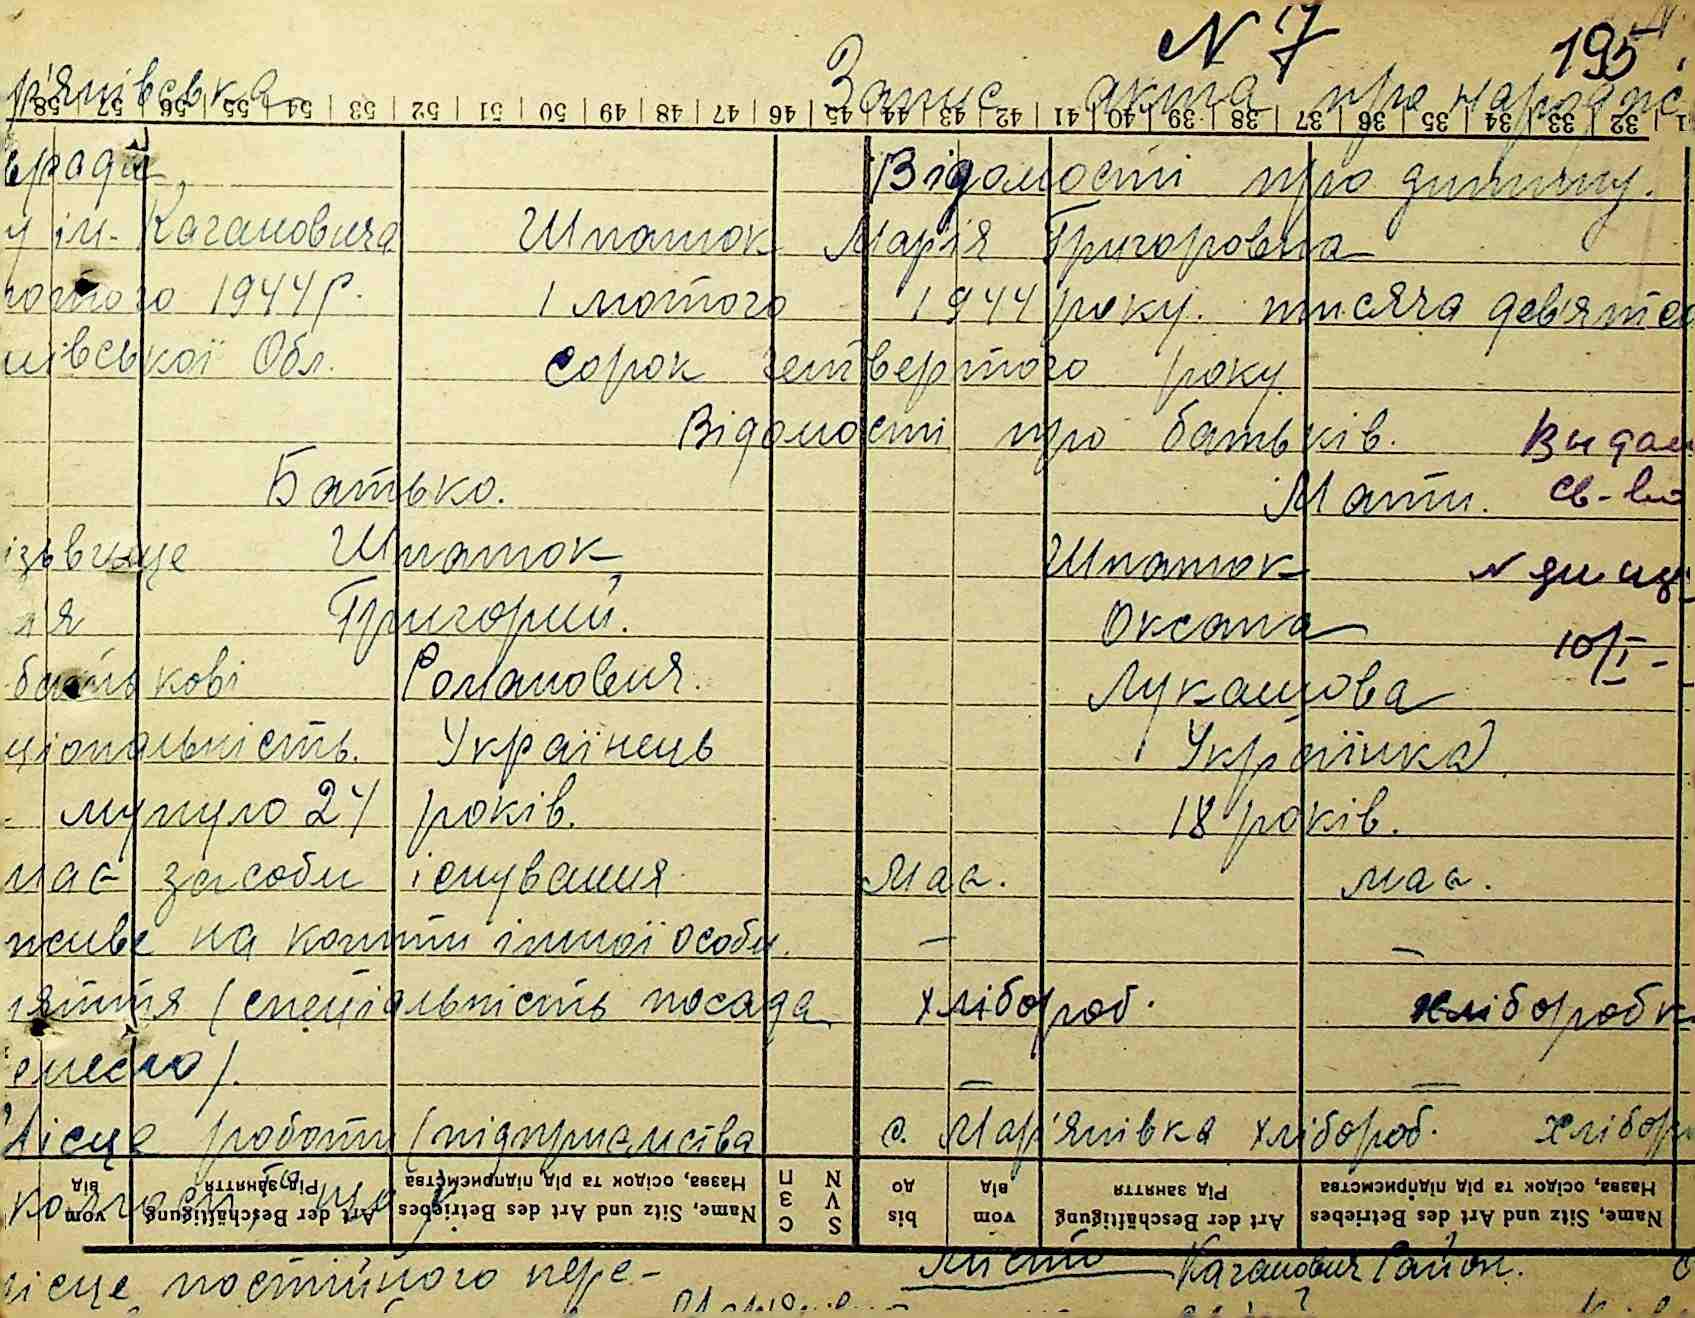 N 7 195
р'янівська Запис акта про народже
врада Відомості про дитину.
у ім. Кагановича Шпаток Марія Григоровна
лютого 1944 р. 1 лютого 1944 року. тисяча девятсо
ківської Обл. сорок четвертого року
Відомості про батьків. Видан
Батько. Мати. Св-во
ізьвище Шпаток Шпаток
м'я Григорий. Оксана
10/I-
батькові Романович. Лукашова
ціональність. Українець Українка
минуло 24 років. 18 років.
має засоби існування має. має.
живе на кошти іншої особи. — —
няття (спеціальність посада хлібороб. хліборобк
емесло). — —
Місце роботи (підприємства с. Мар'янівка хлібороб. хлібор
58 57 56 55 54 53 52 51 50 49 48 47 46 45 44 43 42 41 40 39 38 37 36 35 34 33 32
від Рід заняття Назва, осідок та рід підприємства С З П до від Рід заняття Назва, осідок та рід підприємства
vom Art der Beschäftigung Name, Sitz und Art des Betriebes S V N bis vom Art der Beschäftigung Name, Sitz und Art des Betriebes
місце постійного пере- місто Каганович Район.